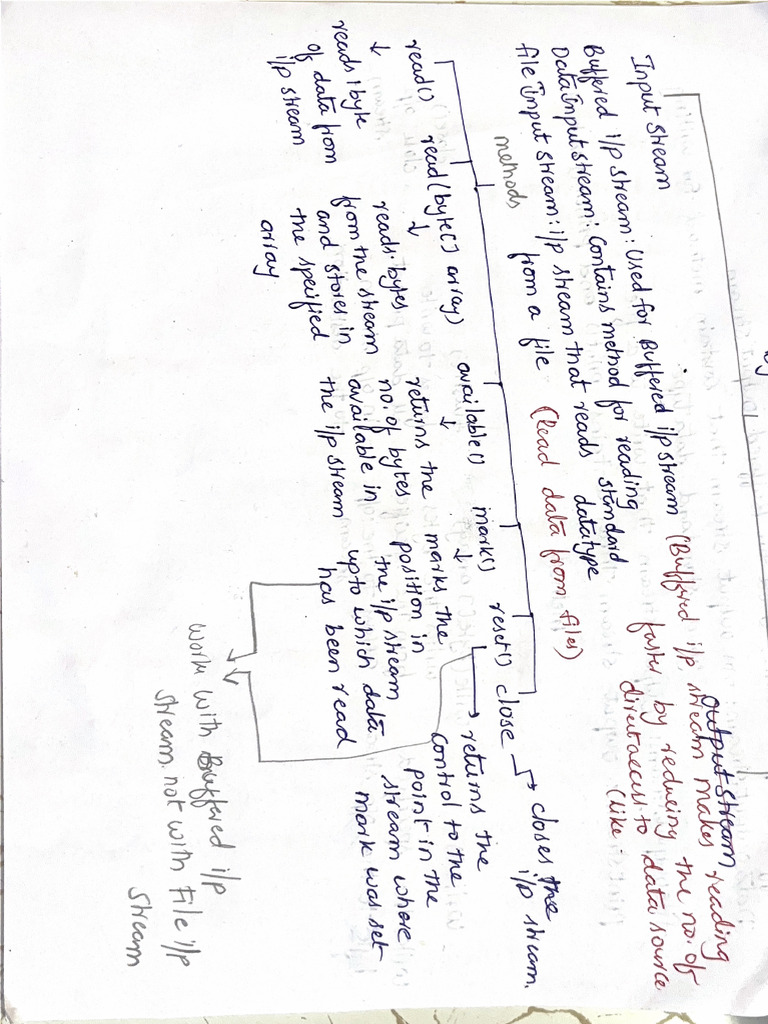 Input Stream
Output Stream
Buffered i/p stream: Used for Buffered i/p stream (Buffered i/p stream makes reading
faster by reducing the no. of
direct access to data source
(like
DataInputstream: Contains method for reading
standard
datatype
file Input stream: i/p stream that reads
from a file (Read data from files)
methods
read()
↓
reads 1 byte
of data from
i/p stream
read(byte[] array)
↓
reads bytes
from the stream
and stores in
the specified
array
available()
↓
returns the
no. of bytes
available in
the i/p stream
mark()
↓
marks the
position in
the i/p stream
upto which data
has been read
reset()
→ returns the
control to the
point in the
stream whore
mark was set
close
→ closes the
i/p stream.
work with Buffered i/p
stream, not with File i/p
Stream